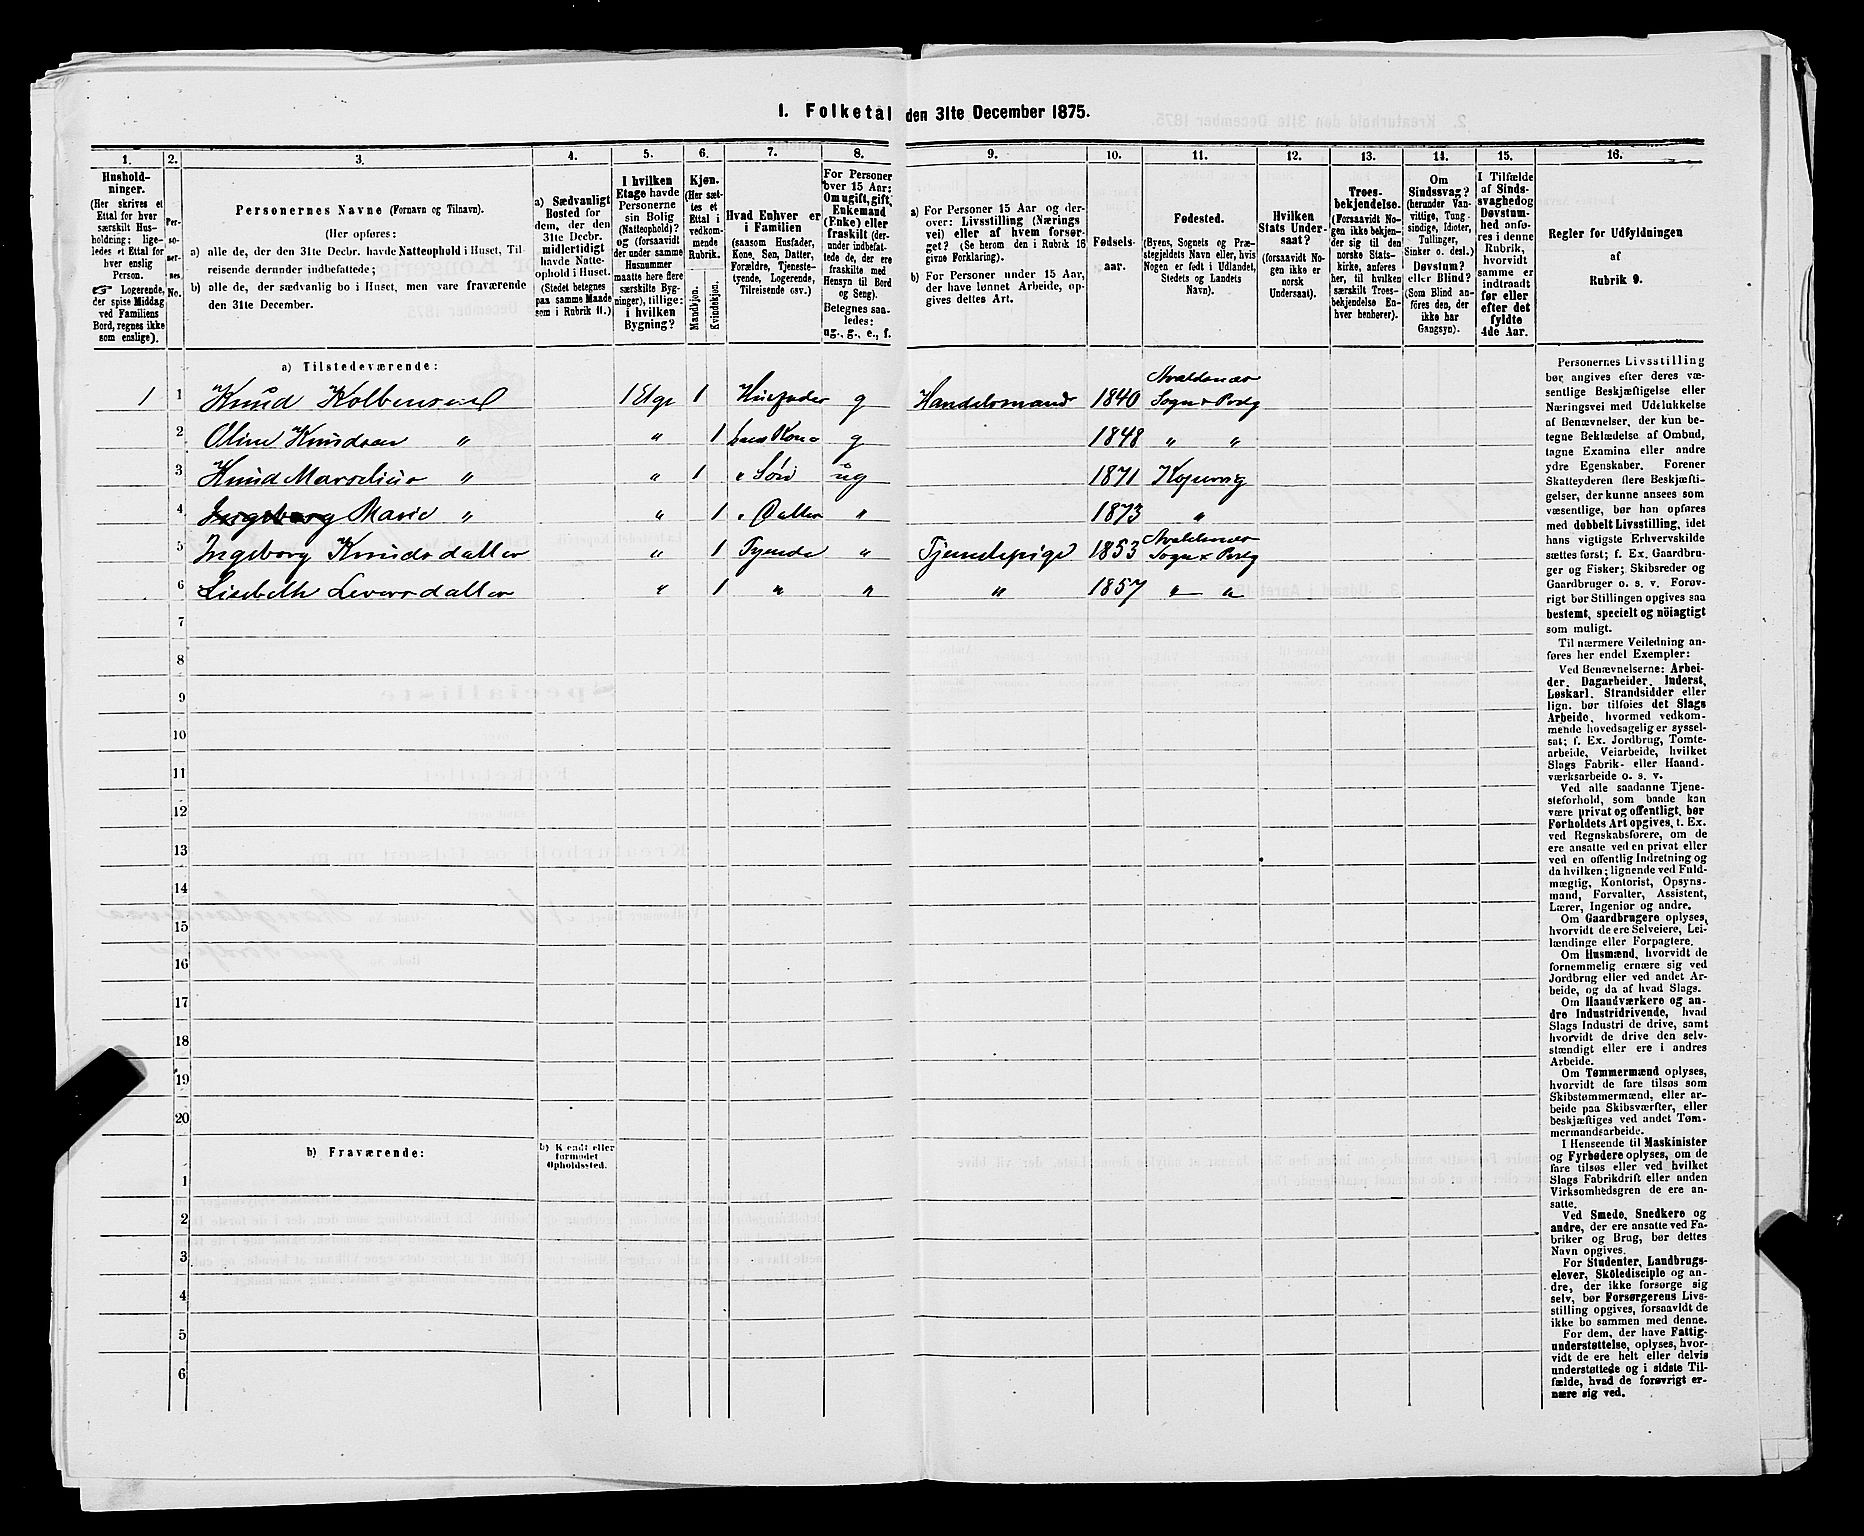 I. Folketal den 31te December 1875.
1. 2. 3. 4. 5. 6. 7. 8. 9. 10. 11. 12. 13. 14. 15. 16.
Hushold-
ninger.
(Her skrives et
Ettal for hver
særskilt Hus-
holdning; lige-
ledes et Ettal for
hver enslig
Person.
☞ Logerende,
der spise Middag
ved Familiens
Bord, regnes ikke
som enslige).
Per-
so-
ner-
nes
No.
Personernes Navne (Fornavn og Tilnavn).
(Her opføres:
a) alle de, der den 31te Decbr. havde Natteophold i Huset, Til-
reisende derunder indbefattede;
b) alle de, der sædvanlig bo i Huset, men vare fraværende
den 31te December.
a) Sædvanligt
Bosted for
dem, der den
31te Decbr.
midlertidigt
havde Natte-
ophold i Huset.
(Stedet betegnes
paa samme Maade
som i Rubrik 11.)
I hvilken
Etage havde
Personerne
sin Bolig
(Natteophold)?
og (forsaavidt
der under samme
Husnummer
maatte høre flere
særskilte Byg-
ninger), tillige:
i hvilken
Bygning?
Kjøn.
(Her sæt-
tes et
Ettal i
vedkom-
mende
Rubrik.
Mandkjøn.
Kvindekjøn.
Hvad Enhver er
i Familien
(saasom Husfader,
Kone, Søn, Datter,
Forældre, Tjeneste-
tyende, Logerende,
Tilreisende osv.).
For Personer
over 15 Aar:
Om ugift, gift,
Enkemand
(Enke) eller
fraskilt (der-
under indbefat-
tede de, der ere
fraskilte med
Hensyn til Bord
og Seng).
Betegnes saa-
ledes:
ug., g., e., f.
a) For Personer 15 Aar og der-
over: Livsstilling (Nærings-
vei) eller af hvem forsør-
get? (Se herom den i Rubrik 16
givne Forklaring).
b) For Personer under 15 Aar,
der have lønnet Arbeide, op-
gives dettes Art.
Fødsels-
aar.
Fødested.
(Byens, Sognets og Præ-
stegjeldets Navn eller, hvis
Nogen er født i Udlandet,
Stedets og Landets
Navn).
Hvilken
Stats Under-
saat?
(forsaavidt No-
gen ikke er
norsk
Undersaat).
Troes-
bekjendelse.
(Forsaavidt No-
gen ikke bekjen-
der sig til den
norske Stats-
kirke, anføres
her, til hvilken
særskilt Troes-
bekjendelse En-
hver henhører).
Om
Sindssvag?
(herunder Van-
vittige, Tung-
sindige, Idioter,
Tullinger,
Sinker o. desl.)
Døvstum?
eller Blind?
(Som Blind an-
føres den, der
ikke har
Gangsyn).
I Tilfælde
af Sinds-
svaghed og
Døvstum-
hed anfø-
res i denne
Rubrik,
hvorvidt
samme er
indtraadt
før eller
efter det
fyldte
4de Aar.
Regler for Udfyldningen
af
Rubrik 9.
a) Tilstedeværende:
1 1 Knud Kolbensen 1 Etge 1 Husfader g Handelsmand 1840 Avaldsnæs Sogn & Prstg
2 Oline Knudsen " " 1 hans Kone g 1848 " "
3 Knud Marselius " " 1 " Søn ug 1871 Kopervig
4 Ingeborg Marie " " 1 " Datter " 1873 "
5 Ingeborg Knudsdatter " 1 Tyende " Tjenestepige 1853 Avaldsnæs Sogn & Prstg
6 Lisebeth Leversdatter " 1 " " " 1857 " "
7
8
9
10
11
12
13
14
15
16
17
18
19
20
b) Fraværende:
b) Kjendt eller
formodet
Opholdssted.
1
2
3
4
5
6
Personernes Livsstilling
bør angives efter deres væ-
sentlige Beskjæftigelse eller
Næringsvei med Udelukkelse
af Benævnelser, der kun be-
tegne Beklædelse af Ombud,
tagne Examina eller andre
ydre Egenskaber. Forener
Skatteyderen flere Beskjæfti-
gelser, der kunne ansees som
væsentlige, bør han opføres
med dobbelt Livsstilling, idet
hans vigtigste Erhvervskilde
sættes først; f. Ex. Gaardbru-
ger og Fisker; Skibsreder og
Gaardbruger o. s. v. Forøv-
rigt bør Stillingen opgives saa
bestemt, specielt og nöiagtigt
som muligt.
Til nærmere Veiledning an-
føres her endel Exempler:
Ved Benævnelserne: Arbei-
der, Dagarbeider, Inderst,
Løskarl, Strandsidder eller
lign. bør tilføies det Slags
Arbeide, hvormed vedkom-
mende hovedsagelig er syssel-
sat; f. Ex. Jordbrug, Tomte-
arbeide, Veiarbeide, hvilket
Slags Fabrik- eller Haand-
værksarbeide o. s. v.
Ved alle saadanne Tjene-
steforhold, som baade kan
være privat og offentligt, bør
Forholdets Art opgives, t. Ex.
ved Regnskabsførere, om de
ere ansatte ved en privat eller
ved en offentlig Indretning og
da hvilken; lignende ved Fuld-
mægtig, Kontorist, Opsyns-
mand, Forvalter, Assistent,
Lærer, Ingeniør og andre.
Om Gaardbrugere oplyses,
hvorvidt de ere Selveiere, Lei-
lændinge eller Forpagtere.
Om Husmænd, hvorvidt de
fornemmelig ernære sig ved
Jordbrug eller ved andet Ar-
beide, og da af hvad Slags.
Om Haandværkere og an-
dre Industridrivende, hvad
Slags Industri de drive, samt
hvorvidt de drive den selv-
stændigt eller ere i andres
Arbeide.
Om Tømmermænd oplyses,
hvorvidt de fare tilsøs som
Skibstømmermænd, eller ar-
beide paa Skibsværfter, eller
beskjæftiges ved andet Tøm-
mermandsarbeide.
I Henseende til Maskinister
og Fyrbødere oplyses, om de
fare tilsøs eller ved hvilket
Slags Fabrikdrift eller anden
Virksomhedsgren de ere an-
satte.
Ved Smede, Snedkere og
andre, der ere ansatte ved Fa-
briker og Brug, bør dettes
Navn opgives.
For Studenter, Landbrugs-
elever, Skoledisciple og an-
dre, der ikke forsørge sig
selv, bør Forsørgerens Livs-
stilling opgives, forsaavidt de
ikke bo sammen med denne.
For dem, der have Fattig-
understøttelse, oplyses, hvor-
vidt de ere helt eller delvis
understøttede og i sidste Til-
fælde, hvad de forøvrigt er-
nære sig ved.